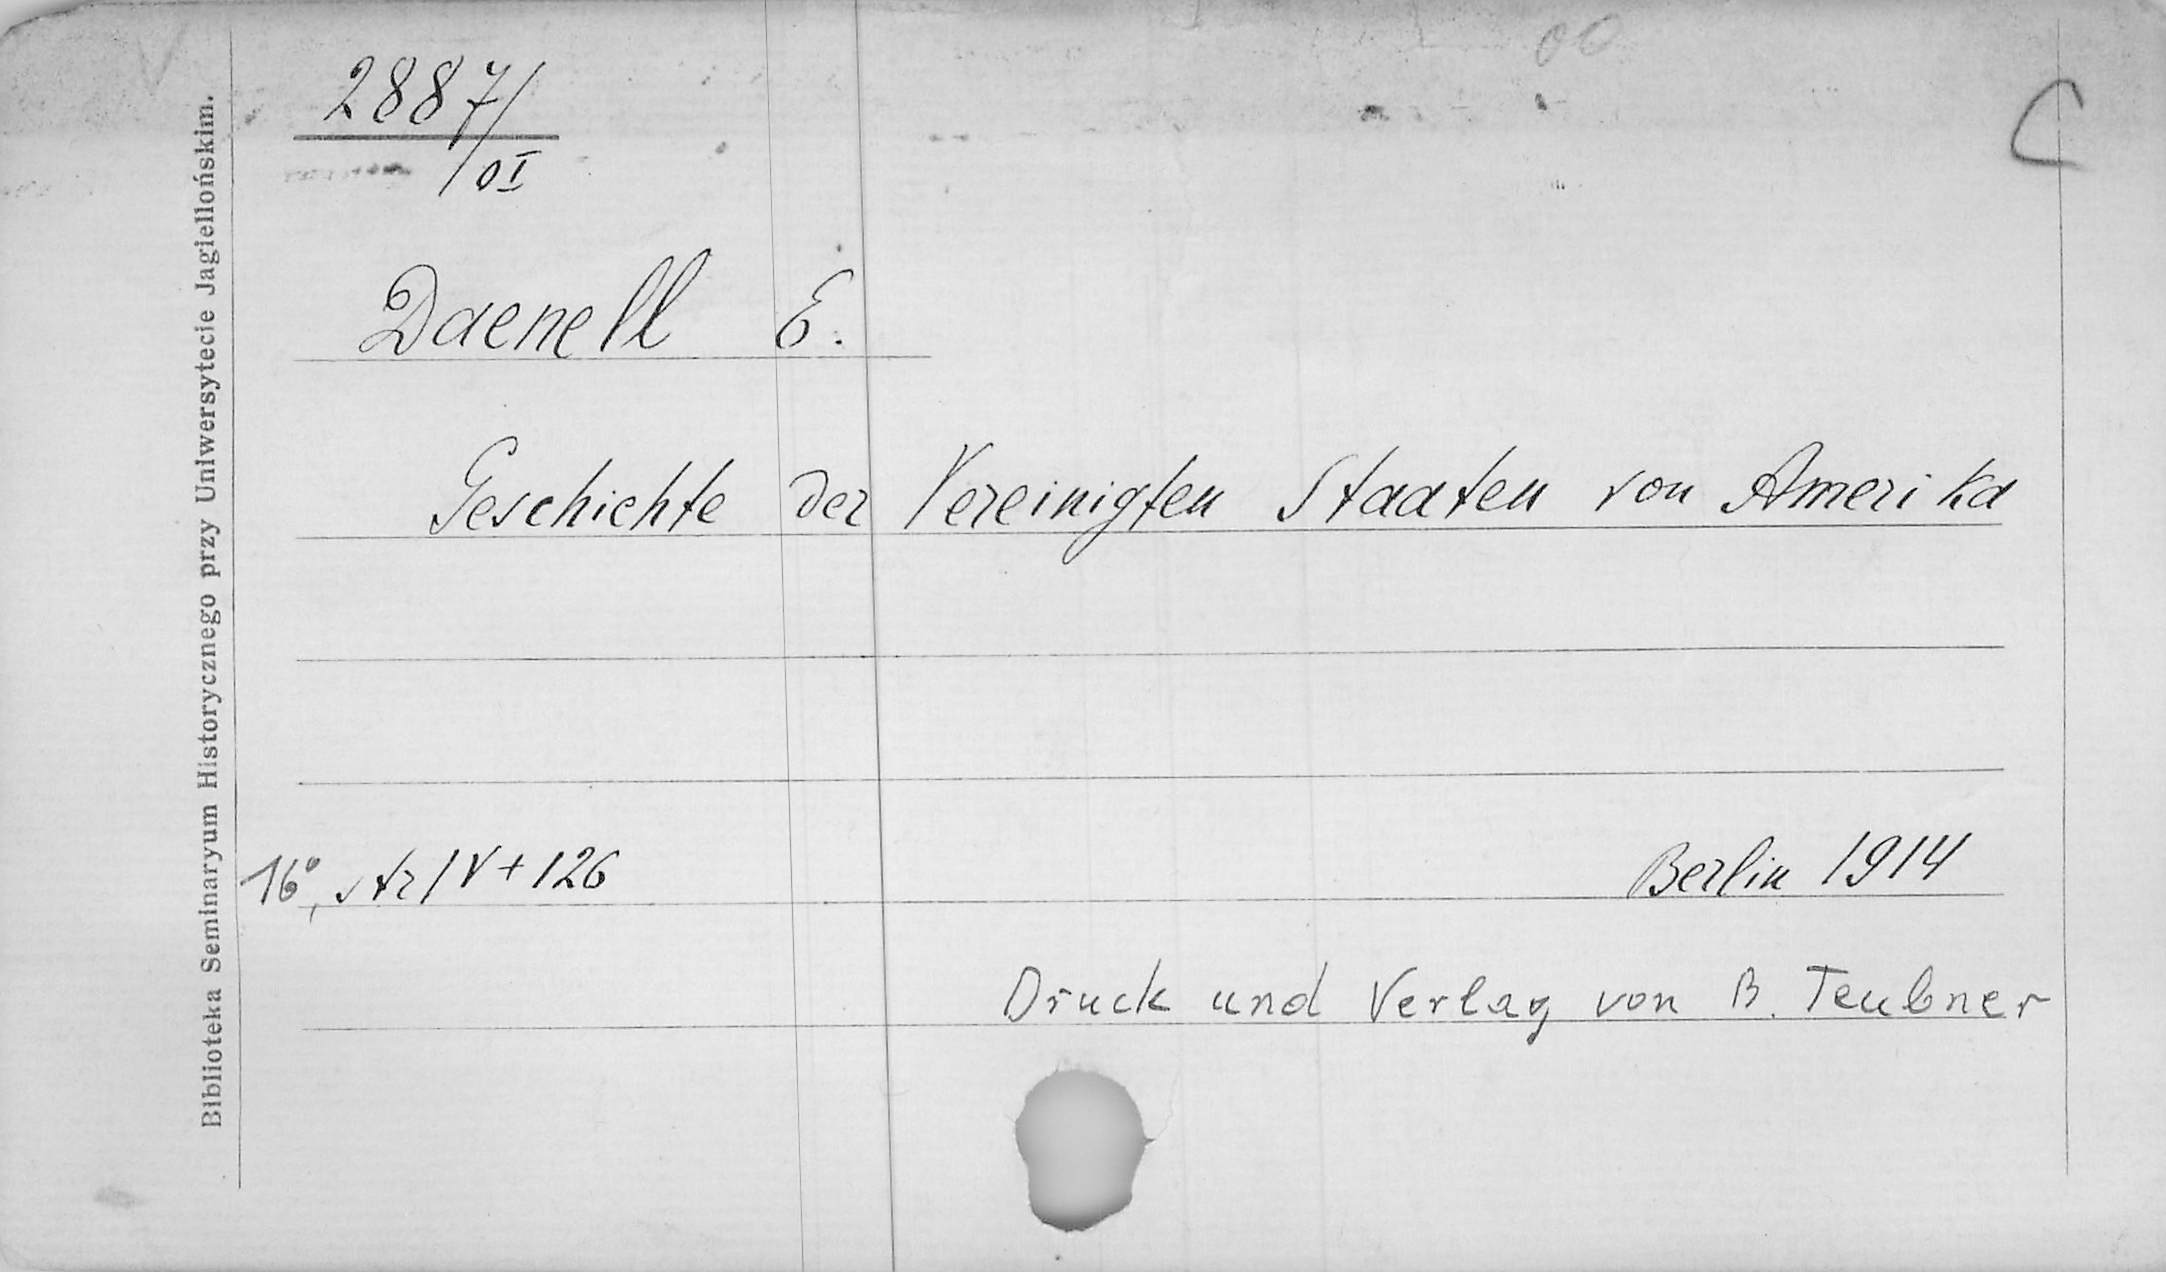 2887/
/OI
C
Daenell E.
Geschichte der Vereinigten Staaten von Amerika
16°, str IV + 126
Berlin 1914
Druck und Verlag von B. Teubner
Biblioteka Seminaryum Historycznego przy Uniwersytecie Jagiellońskim.